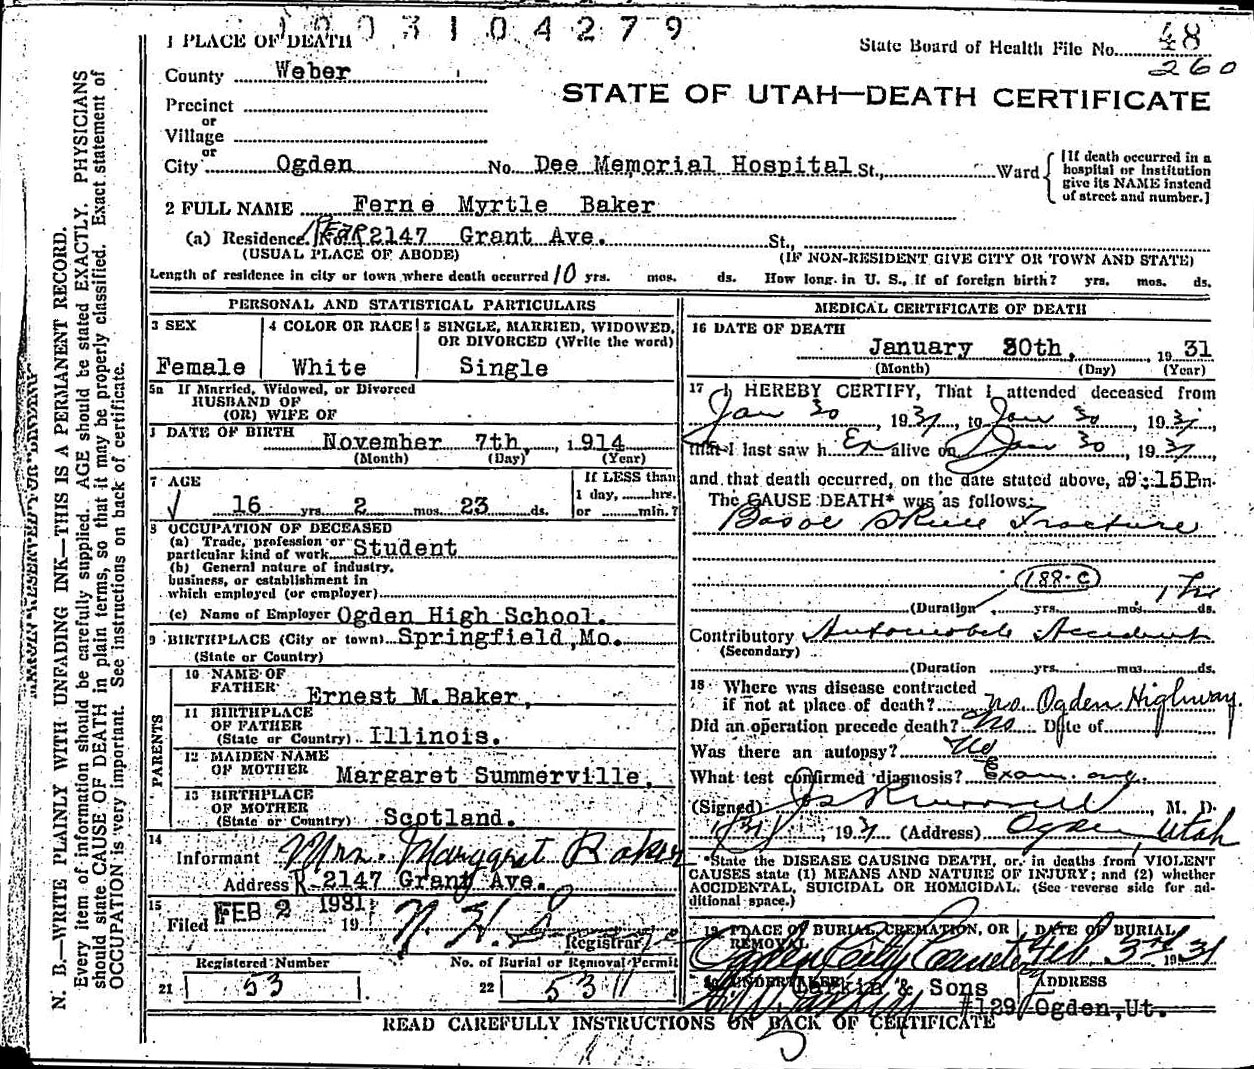 1003104279
1 PLACE OF DEATH
State Board of Health File No. 48
260
County Weber
STATE OF UTAH—DEATH CERTIFICATE
Precinct
or
Village
or
City Ogden No. Dee Memorial Hospital St., Ward
[If death occurred in a hospital or institution give its NAME instead of street and number.]
2 FULL NAME Ferne Myrtle Baker
(a) Residence. No. Rear 2147 Grant Ave. St.,
(USUAL PLACE OF ABODE) (IF NON-RESIDENT GIVE CITY OR TOWN AND STATE)
Length of residence in city or town where death occurred 10 yrs. mos. ds. How long in U. S., if of foreign birth? yrs. mos. ds.
PERSONAL AND STATISTICAL PARTICULARS
3 SEX
Female
4 COLOR OR RACE
White
5 SINGLE, MARRIED, WIDOWED,
OR DIVORCED (Write the word)
Single
5a If Married, Widowed, or Divorced
HUSBAND OF
(OR) WIFE OF
DATE OF BIRTH November 7th, 1914
(Month) (Day) (Year)
7 AGE
16 yrs. 2 mos. 23 ds.
If LESS than
1 day, hrs.
or min.?
8 OCCUPATION OF DECEASED
(a) Trade, profession or
particular kind of work Student
(b) General nature of industry,
business, or establishment in
which employed (or employer)
(c) Name of Employer Ogden High School.
9 BIRTHPLACE (City or town) Springfield, Mo.
(State or Country)
PARENTS
10 NAME OF
FATHER Ernest M. Baker,
11 BIRTHPLACE
OF FATHER
(State or Country) Illinois.
12 MAIDEN NAME
OF MOTHER Margaret Summerville,
13 BIRTHPLACE
OF MOTHER
(State or Country) Scotland.
14
Informant Mrs. Margaret Baker
Address R-2147 Grant Ave.
15
Filed FEB 2 1931 19 N. H.
Registrar
Registered Number No. of Burial or Removal Permit
21 53 22 53
MEDICAL CERTIFICATE OF DEATH
16 DATE OF DEATH
January 30th, 1931
(Month) (Day) (Year)
17 I HEREBY CERTIFY, That I attended deceased from
Jan 30, 1931, to Jan 30, 1931,
that I last saw h er alive on Jan 30, 1931,
and that death occurred, on the date stated above, at 9:15Pm.
The CAUSE DEATH* was as follows:
Basal Skull Fracture
188-C
(Duration yrs. mos. ds.
Contributory Automobile Accident
(Secondary)
(Duration yrs. mos. ds.
18 Where was disease contracted
if not at place of death? no. Ogden Highway.
Did an operation precede death? No Date of
Was there an autopsy? No
What test confirmed diagnosis? Exam. only.
(Signed) , M. D.
1/31, 1931 (Address) Ogden, Utah
*State the DISEASE CAUSING DEATH, or, in deaths from VIOLENT
CAUSES state (1) MEANS AND NATURE OF INJURY; and (2) whether
ACCIDENTAL, SUICIDAL OR HOMICIDAL. (See reverse side for ad-
ditional space.)
19 PLACE OF BURIAL, CREMATION, OR
REMOVAL
Ogden City Cemetery
DATE OF BURIAL
Feb. 3rd 1931
20 UNDERTAKER
Larkin & Sons
#129
ADDRESS
Ogden, Ut.
READ CAREFULLY INSTRUCTIONS ON BACK OF CERTIFICATE
MARGIN RESERVED FOR BINDING
N. B.—WRITE PLAINLY WITH UNFADING INK—THIS IS A PERMANENT RECORD.
Every item of information should be carefully supplied. AGE should be stated EXACTLY. PHYSICIANS
should state CAUSE OF DEATH in plain terms, so that it may be properly classified. Exact statement of
OCCUPATION is very important. See instructions on back of certificate.